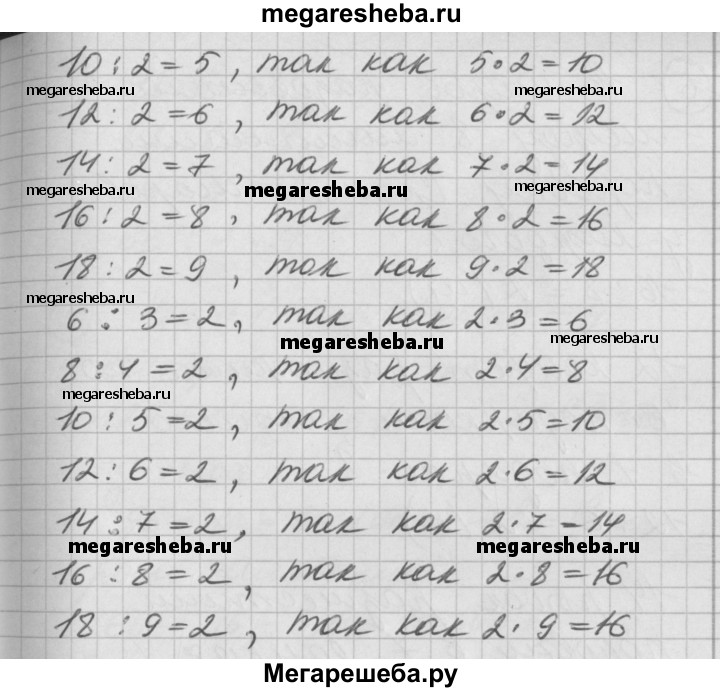 megaresheba.ru
10 : 2 = 5, так как 5 · 2 = 10
megaresheba.ru megaresheba.ru
12 : 2 = 6, так как 6 · 2 = 12
14 : 2 = 7, так как 7 · 2 = 14
megaresheba.ru megaresheba.ru megaresheba.ru
16 : 2 = 8, так как 8 · 2 = 16
18 : 2 = 9, так как 9 · 2 = 18
megaresheba.ru
6 : 3 = 2, так как 2 · 3 = 6
megaresheba.ru megaresheba.ru
8 : 4 = 2, так как 2 · 4 = 8
megaresheba.ru
10 : 5 = 2, так как 2 · 5 = 10
12 : 6 = 2, так как 2 · 6 = 12
14 : 7 = 2, так как 2 · 7 = 14
megaresheba.ru megaresheba.ru
16 : 8 = 2, так как 2 · 8 = 16
18 : 9 = 2, так как 2 · 9 = 16
Мегарешеба.ру